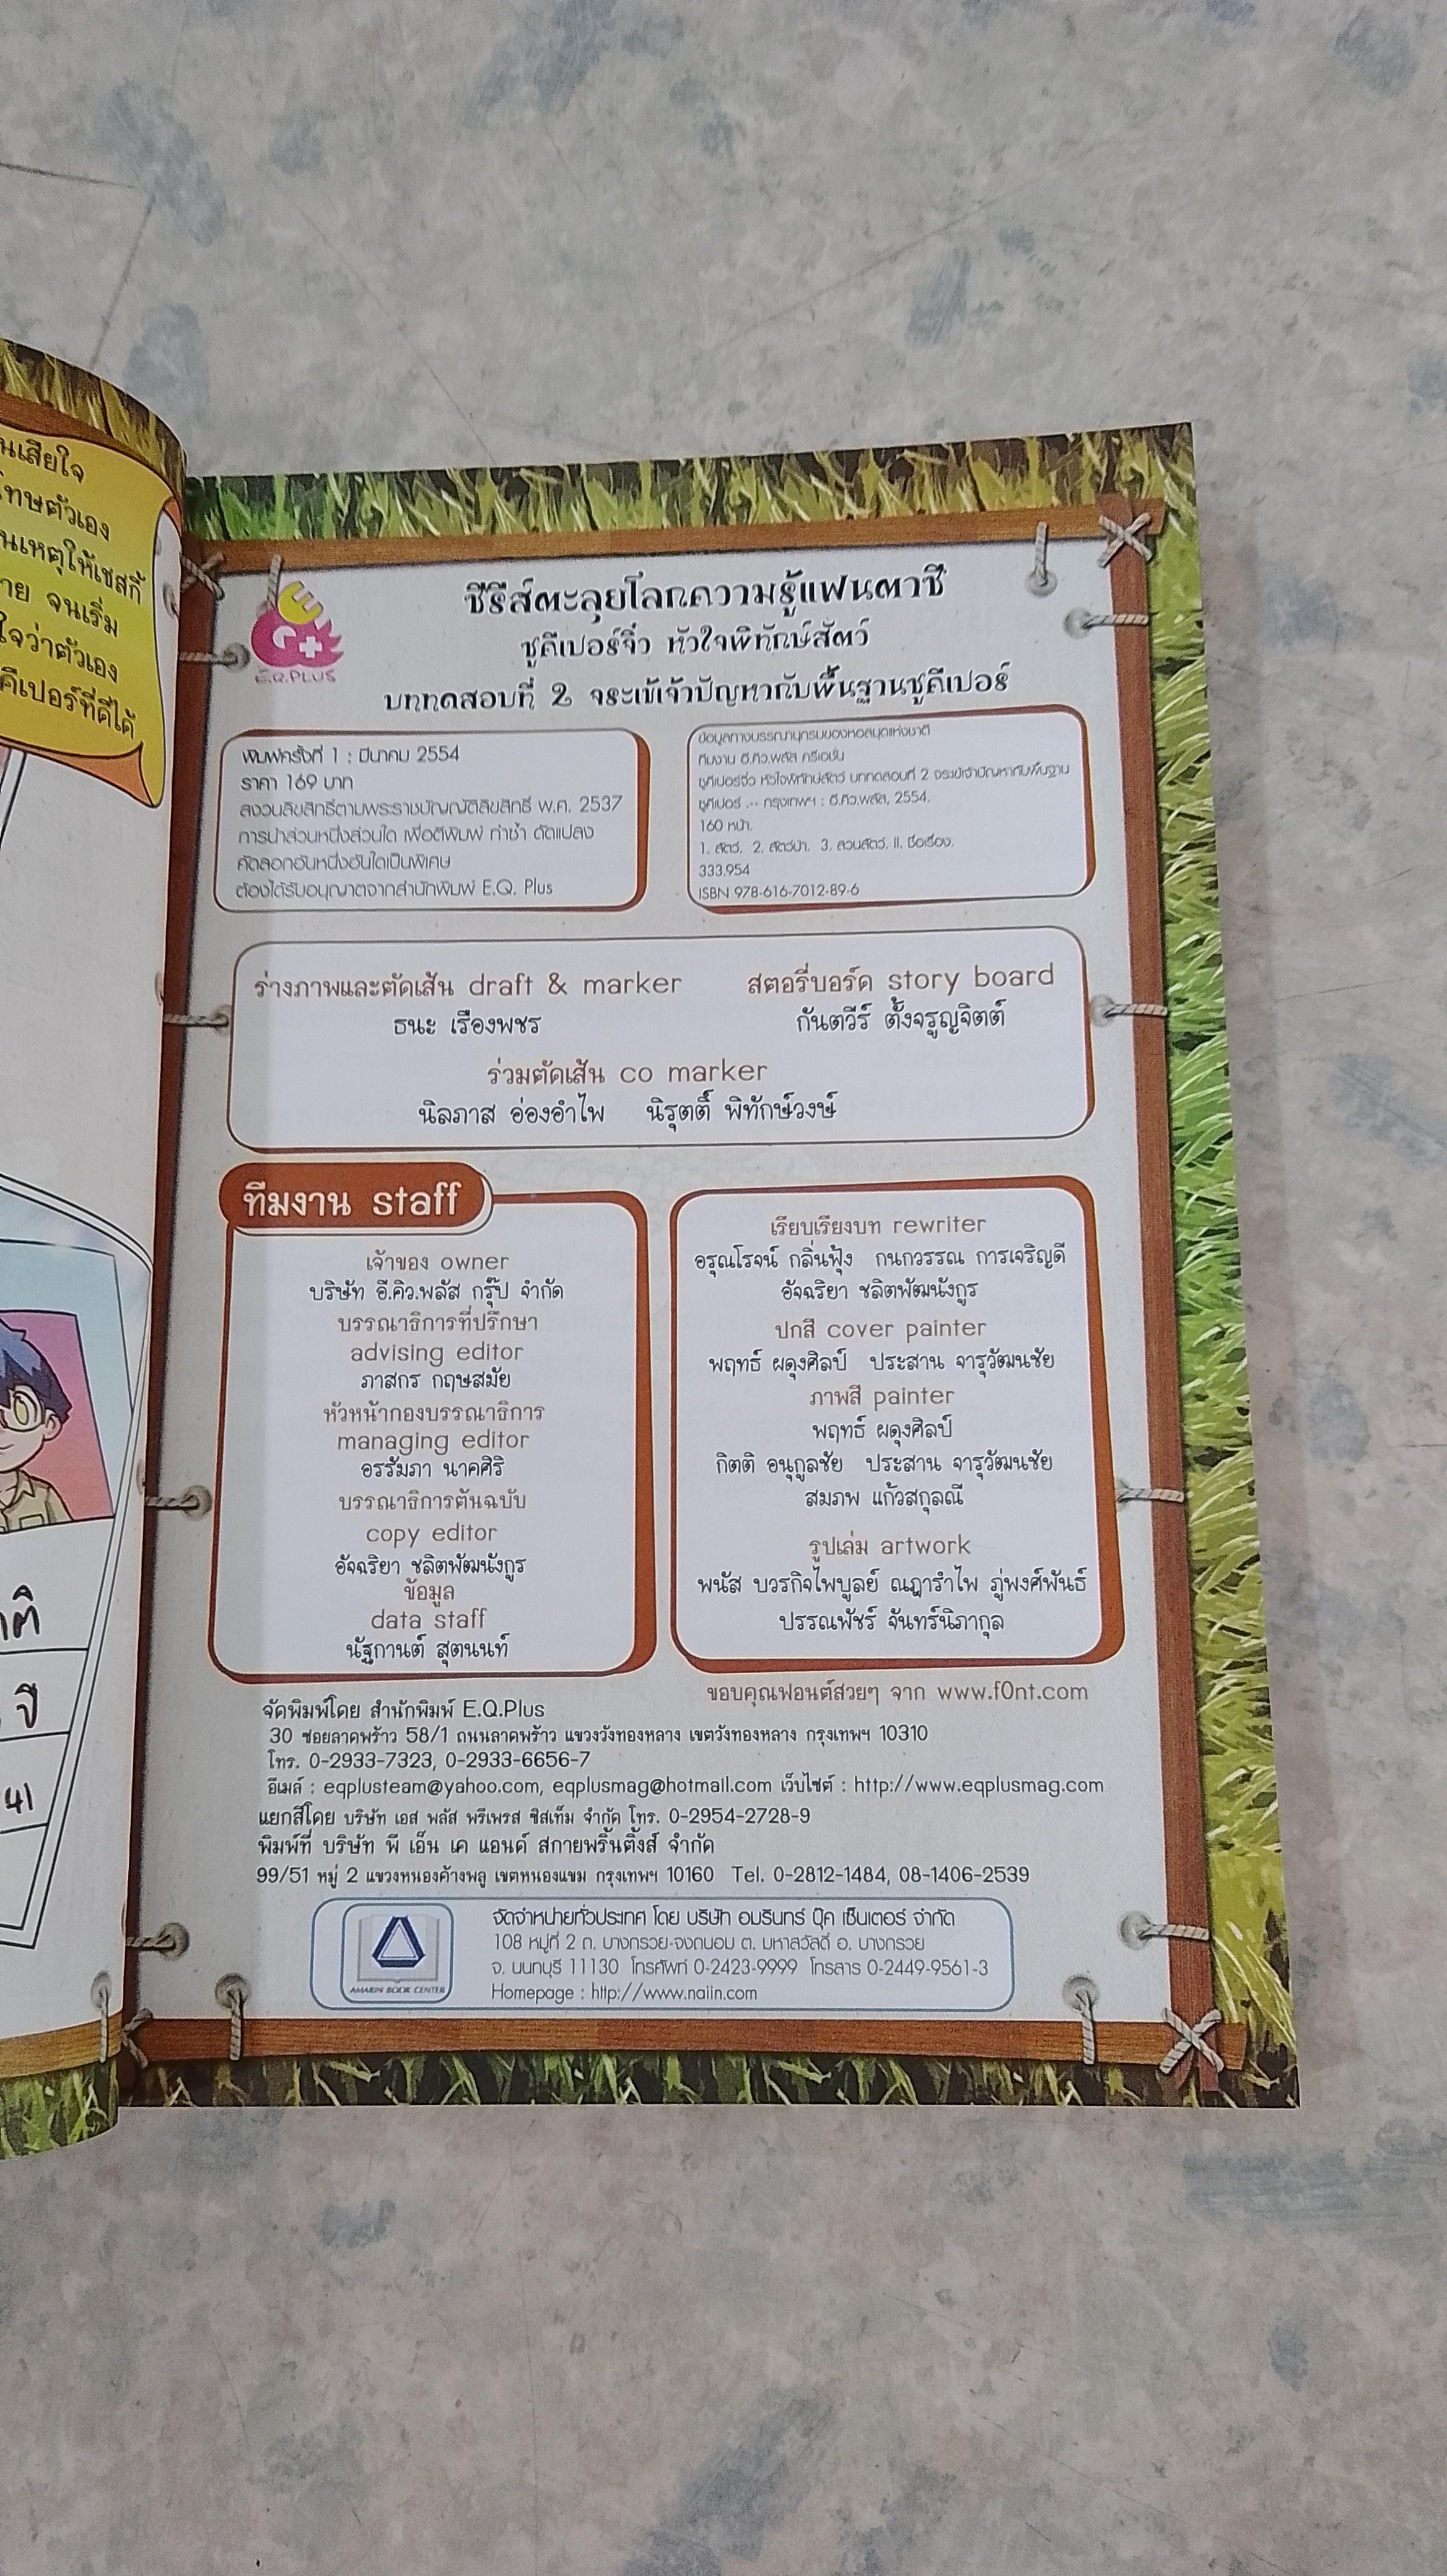 นเสียใจ
โทษตัวเอง
นเหตุให้เชสกี้
าย จนเริ่ม
ใจว่าตัวเอง
คีเปอร์ที่ดีได้
าติ
ปี
E.Q.PLUS
ซีรีส์ตะลุยโลกความรู้แฟนตาซี
ซูคีเปอร์จิ๋ว หัวใจพิทักษ์สัตว์
บททดสอบที่ 2 จระเข้เจ้าปัญหากับพื้นฐานซูคีเปอร์
พิมพ์ครั้งที่ 1 : มีนาคม 2554
ราคา 169 บาท
สงวนลิขสิทธิ์ตามพระราชบัญญัติลิขสิทธิ์ พ.ศ. 2537
การนำส่วนหนึ่งส่วนใด เพื่อตีพิมพ์ ทำซ้ำ ดัดแปลง
คัดลอกอันหนึ่งอันใดเป็นพิเศษ
ต้องได้รับอนุญาตจากสำนักพิมพ์ E.Q. Plus
ข้อมูลทางบรรณานุกรมของหอสมุดแห่งชาติ
ทีมงาน อี.คิว.พลัส ครีเอชั่น
ซูคีเปอร์จิ๋ว หัวใจพิทักษ์สัตว์ บททดสอบที่ 2 จระเข้เจ้าปัญหากับพื้นฐาน
ซูคีเปอร์ .-- กรุงเทพฯ : อี.คิว.พลัส, 2554.
160 หน้า.
1. สัตว์. 2. สัตว์ป่า. 3. สวนสัตว์. II. ชื่อเรื่อง.
333.954
ISBN 978-616-7012-89-6
ร่างภาพและตัดเส้น draft & marker สตอรี่บอร์ด story board
ธนะ เรืองพชร กันตวีร์ ตั้งจรูญจิตต์
ร่วมตัดเส้น co marker
นิลภาส อ่องอำไพ นิรุตติ์ พิทักษ์วงษ์
ทีมงาน staff
เจ้าของ owner
บริษัท อี.คิว.พลัส กรุ๊ป จำกัด
บรรณาธิการที่ปรึกษา
advising editor
ภาสกร กฤษสมัย
หัวหน้ากองบรรณาธิการ
managing editor
อรรัมภา นาคศิริ
บรรณาธิการต้นฉบับ
copy editor
อัจฉริยา ชลิตพัฒนังกูร
ข้อมูล
data staff
นัฐกานต์ สุตนนท์
เรียบเรียงบท rewriter
อรุณโรจน์ กลิ่นฟุ้ง กนกวรรณ การเจริญดี
อัจฉริยา ชลิตพัฒนังกูร
ปกสี cover painter
พฤทธ์ ผดุงศิลป์ ประสาน จารุวัฒนชัย
ภาพสี painter
พฤทธ์ ผดุงศิลป์
กิตติ อนุกูลชัย ประสาน จารุวัฒนชัย
สมภพ แก้วสกุลณี
รูปเล่ม artwork
พนัส บวรกิจไพบูลย์ ณฎารำไพ ภู่พงศ์พันธ์
ปรรณพัชร์ จันทร์นิภากุล
ขอบคุณฟอนต์สวยๆ จาก www.f0nt.com
จัดพิมพ์โดย สำนักพิมพ์ E.Q.Plus
30 ซอยลาดพร้าว 58/1 ถนนลาดพร้าว แขวงวังทองหลาง เขตวังทองหลาง กรุงเทพฯ 10310
โทร. 0-2933-7323, 0-2933-6656-7
อีเมล์ : eqplusteam@yahoo.com, eqplusmag@hotmail.com เว็บไซต์ : http://www.eqplusmag.com
แยกสีโดย บริษัท เอส พลัส พรีเพรส ซิสเท็ม จำกัด โทร. 0-2954-2728-9
พิมพ์ที่ บริษัท พี เอ็น เค แอนด์ สกายพริ้นติ้งส์ จำกัด
99/51 หมู่ 2 แขวงหนองค้างพลู เขตหนองแขม กรุงเทพฯ 10160 Tel. 0-2812-1484, 08-1406-2539
AMARIN BOOK CENTER
จัดจำหน่ายทั่วประเทศ โดย บริษัท อมรินทร์ บุ๊ค เซ็นเตอร์ จำกัด
108 หมู่ที่ 2 ถ. บางกรวย-จงถนอม ต. มหาสวัสดิ์ อ. บางกรวย
จ. นนทบุรี 11130 โทรศัพท์ 0-2423-9999 โทรสาร 0-2449-9561-3
Homepage : http://www.naiin.com